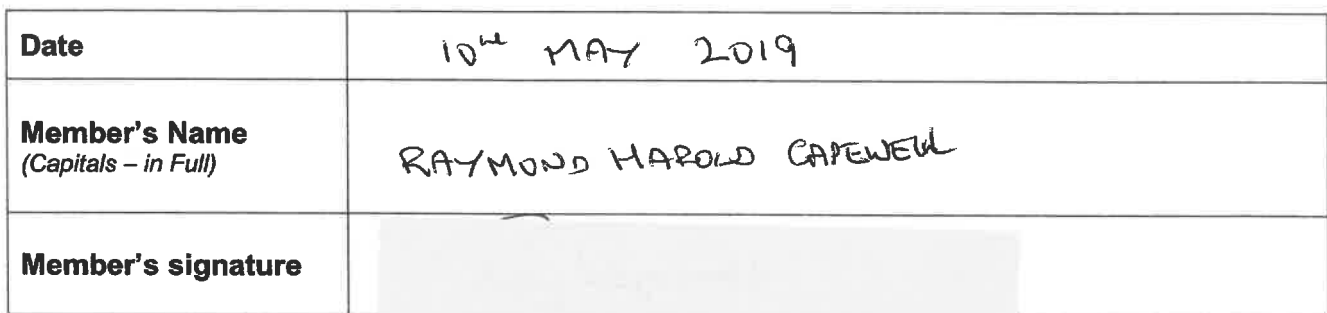 Date
10th MAY 2019
Member's Name
(Capitals – in Full)
RAYMOND HAROLD CAPEWELL
Member's signature